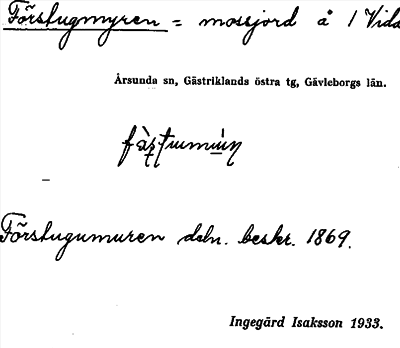 Förstugmyren = mossjord å 1 Vida
Årsunda sn, Gästriklands östra tg, Gävleborgs län.
Förstugumuren deln. beskr. 1869.
Ingegärd Isaksson 1933.